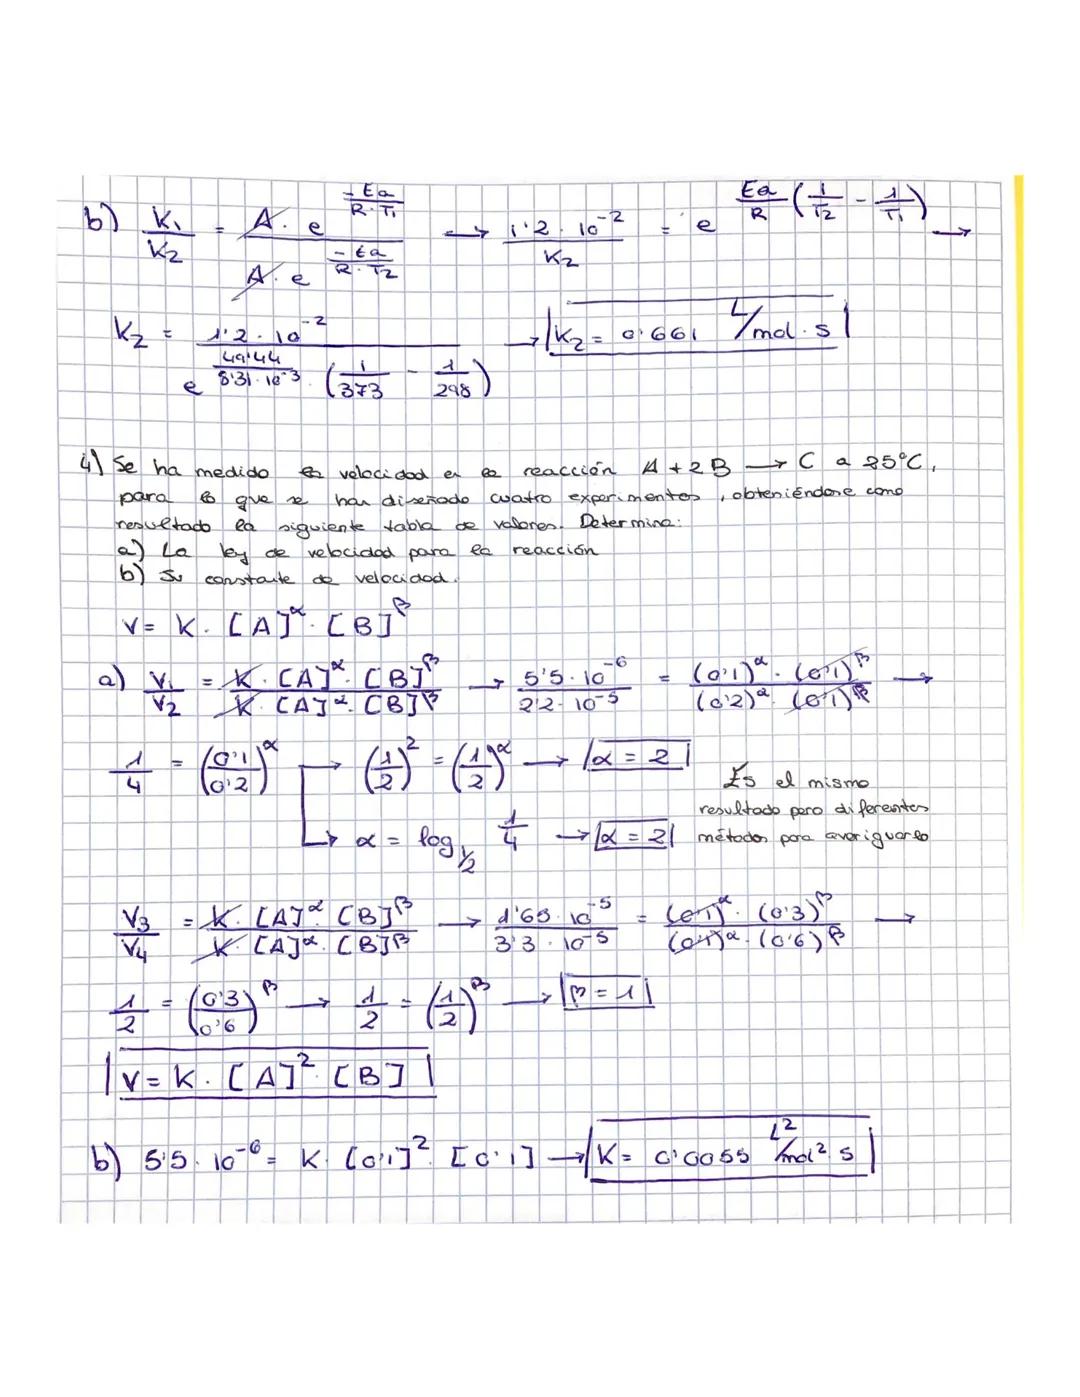 b) K₁/K₂ = A·e^(-Ea/R·T₁) / A·e^(-Ea/R·T₂) → 1'2·10⁻²/K₂ = e^(Ea/R (1/T₂ - 1/T₁)) →
K₂ = 1'2·10⁻² / e^(49'44/8'31·10⁻³ · (1/373 - 1/298)) → K₂ = 0'661 L/mol·s
4) Se ha medido la velocidad en la reacción A + 2B → C a 25°C,
para lo que se han diseñado cuatro experimentos, obteniéndose como
resultado la siguiente tabla de valores. Determina:
a) La ley de velocidad para la reacción
b) Su constante de velocidad.
V = K·[A]^α·[B]^β
a) V₁/V₂ = K·[A]^α·[B]^β / K·[A]^α·[B]^β → 5'5·10⁻⁶ / 2'2·10⁻⁵ = (0'1)^α·(0'1)^β / (0'2)^α·(0'1)^β →
1/4 = (0'1/0'2)^α → (1/2)² = (1/2)^α → α = 2
Es el mismo
resultado pero diferentes
→ α = log_1/2 1/4 → α = 2 métodos para averiguarlo
V₃/V₄ = K·[A]^α [B]^β / K·[A]^α·[B]^β → 1'65·10⁻⁵ / 3'3·10⁻⁵ = (0'1)^α·(0'3)^β / (0'1)^α·(0'6)^β →
1/2 = (0'3/0'6)^β → 1/2 = (1/2)^β → β = 1
V = K·[A]²·[B]
b) 5'5·10⁻⁶ = K·[0'1]²·[0'1] → K = 0'0055 L²/mol²·s